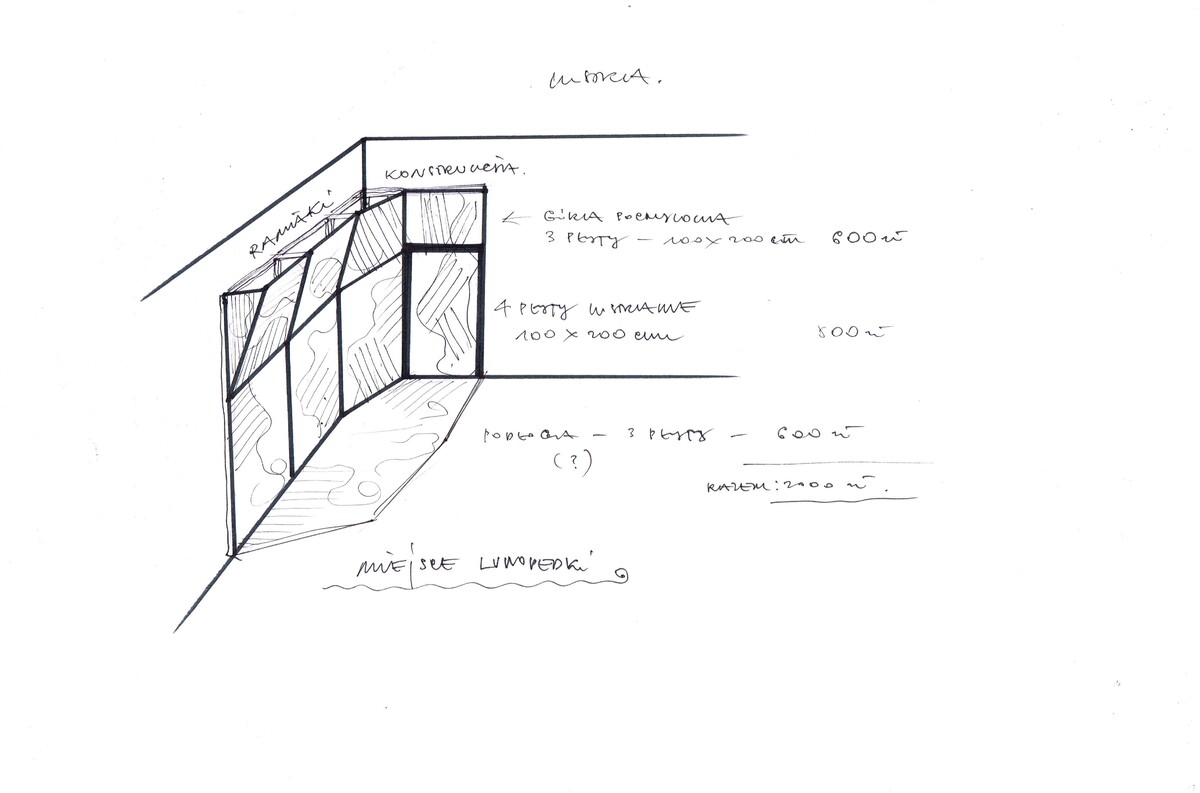 LUSTRA.
KONSTRUKCJA.
GÓRA POCHYŁONA
3 PŁYTY – 100 X 200 cm 600 zł
4 PŁYTY
100 X 200 cm 800 zł
PODŁOGA – 3 PŁYTY – 600 zł
(?)
RAZEM: 2000 zł.
MIEJSCE